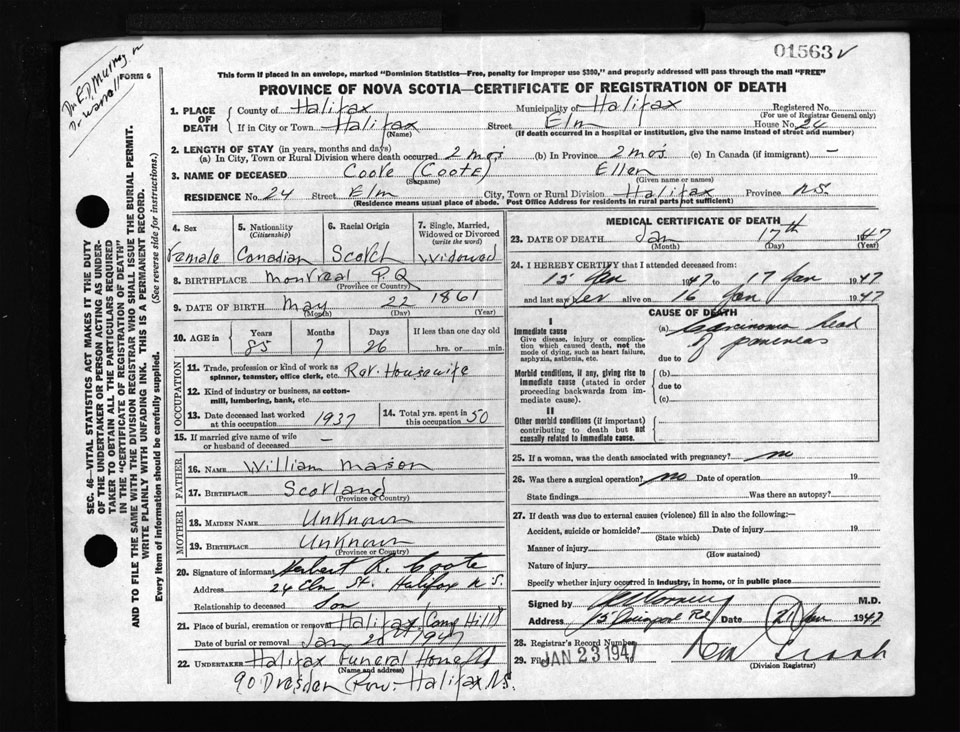 01563
Dr. E.D. Murray
FORM 6
This form if placed in an envelope, marked "Dominion Statistics—Free, penalty for improper use $300," and properly addressed will pass through the mail "FREE"
PROVINCE OF NOVA SCOTIA—CERTIFICATE OF REGISTRATION OF DEATH
1. PLACE OF DEATH County of Halifax Municipality of Halifax Registered No.
(For use of Registrar General only)
If in City or Town Halifax Street Elm House No. 24
(Name) (If death occurred in a hospital or institution, give the name instead of street and number)
2. LENGTH OF STAY (in years, months and days)
(a) In City, Town or Rural Division where death occurred 2 mo's (b) In Province 2 mo's (c) In Canada (if immigrant) —
3. NAME OF DECEASED Coote (Coote) Ellen
(Surname) (Given name or names)
RESIDENCE No. 24 Street Elm City, Town or Rural Division Halifax Province N.S.
(Residence means usual place of abode. Post Office Address for residents in rural parts not sufficient)
4. Sex 5. Nationality (Citizenship) 6. Racial Origin 7. Single, Married, Widowed or Divorced (write the word)
Female Canadian Scotch Widowed
8. BIRTHPLACE Montreal P.Q
(Province or Country)
9. DATE OF BIRTH May 22 1861
(Month) (Day) (Year)
10. AGE in Years Months Days If less than one day old
85 7 26 hrs. or min.
OCCUPATION
11. Trade, profession or kind of work as spinner, teamster, office clerk, etc. Ret. Housewife
12. Kind of industry or business, as cotton-mill, lumbering, bank, etc.
13. Date deceased last worked at this occupation 1937 14. Total yrs. spent in this occupation 50
15. If married give name of wife or husband of deceased —
FATHER
16. NAME William Mason
17. BIRTHPLACE Scotland
(Province or Country)
MOTHER
18. MAIDEN NAME Unknown
19. BIRTHPLACE Unknown
(Province or Country)
20. Signature of informant Herbert R. Coote
Address 24 Elm St. Halifax N.S.
Relationship to deceased Son
21. Place of burial, cremation or removal Halifax (Camp Hill)
Date of burial or removal Jan 20th 1947
22. UNDERTAKER Halifax Funeral Home
(Name and address)
90 Dresden Row. Halifax N.S.
MEDICAL CERTIFICATE OF DEATH
23. DATE OF DEATH Jan 17th 1947
(Month) (Day) (Year)
24. I HEREBY CERTIFY that I attended deceased from:
1947 to 17 Jan 1947
and last saw her alive on 16 Jan 1947
CAUSE OF DEATH
I
Immediate cause (a) Carcinoma head
Give disease, injury or complication which caused death, not the mode of dying, such as heart failure, asphyxia, asthenia, etc. of pancreas
due to
Morbid conditions, if any, giving rise to immediate cause (stated in order proceeding backwards from immediate cause). (b)
due to
(c)
II
Other morbid conditions (if important) contributing to death but not causally related to immediate cause.
25. If a woman, was the death associated with pregnancy? no
26. Was there a surgical operation? no Date of operation 19
State findings Was there an autopsy?
27. If death was due to external causes (violence) fill in also the following:—
Accident, suicide or homicide? Date of injury 19
(State which)
Manner of injury
(How sustained)
Nature of injury
Specify whether injury occurred in industry, in home, or in public place
Signed by M.D.
Address Date 21 Jan 1947
28. Registrar's Record Number
29. Filed JAN 23 1947
(Division Registrar)
SEC. 46—VITAL STATISTICS ACT MAKES IT THE DUTY
OF THE UNDERTAKER OR PERSON ACTING AS UNDER-
TAKER TO OBTAIN ALL THE PARTICULARS REQUIRED
IN THE "CERTIFICATE OF REGISTRATION OF DEATH"
AND TO FILE THE SAME WITH THE DIVISION REGISTRAR WHO SHALL ISSUE THE BURIAL PERMIT.
WRITE PLAINLY WITH UNFADING INK. THIS IS A PERMANENT RECORD.
Every item of information should be carefully supplied. (See reverse side for instructions.)